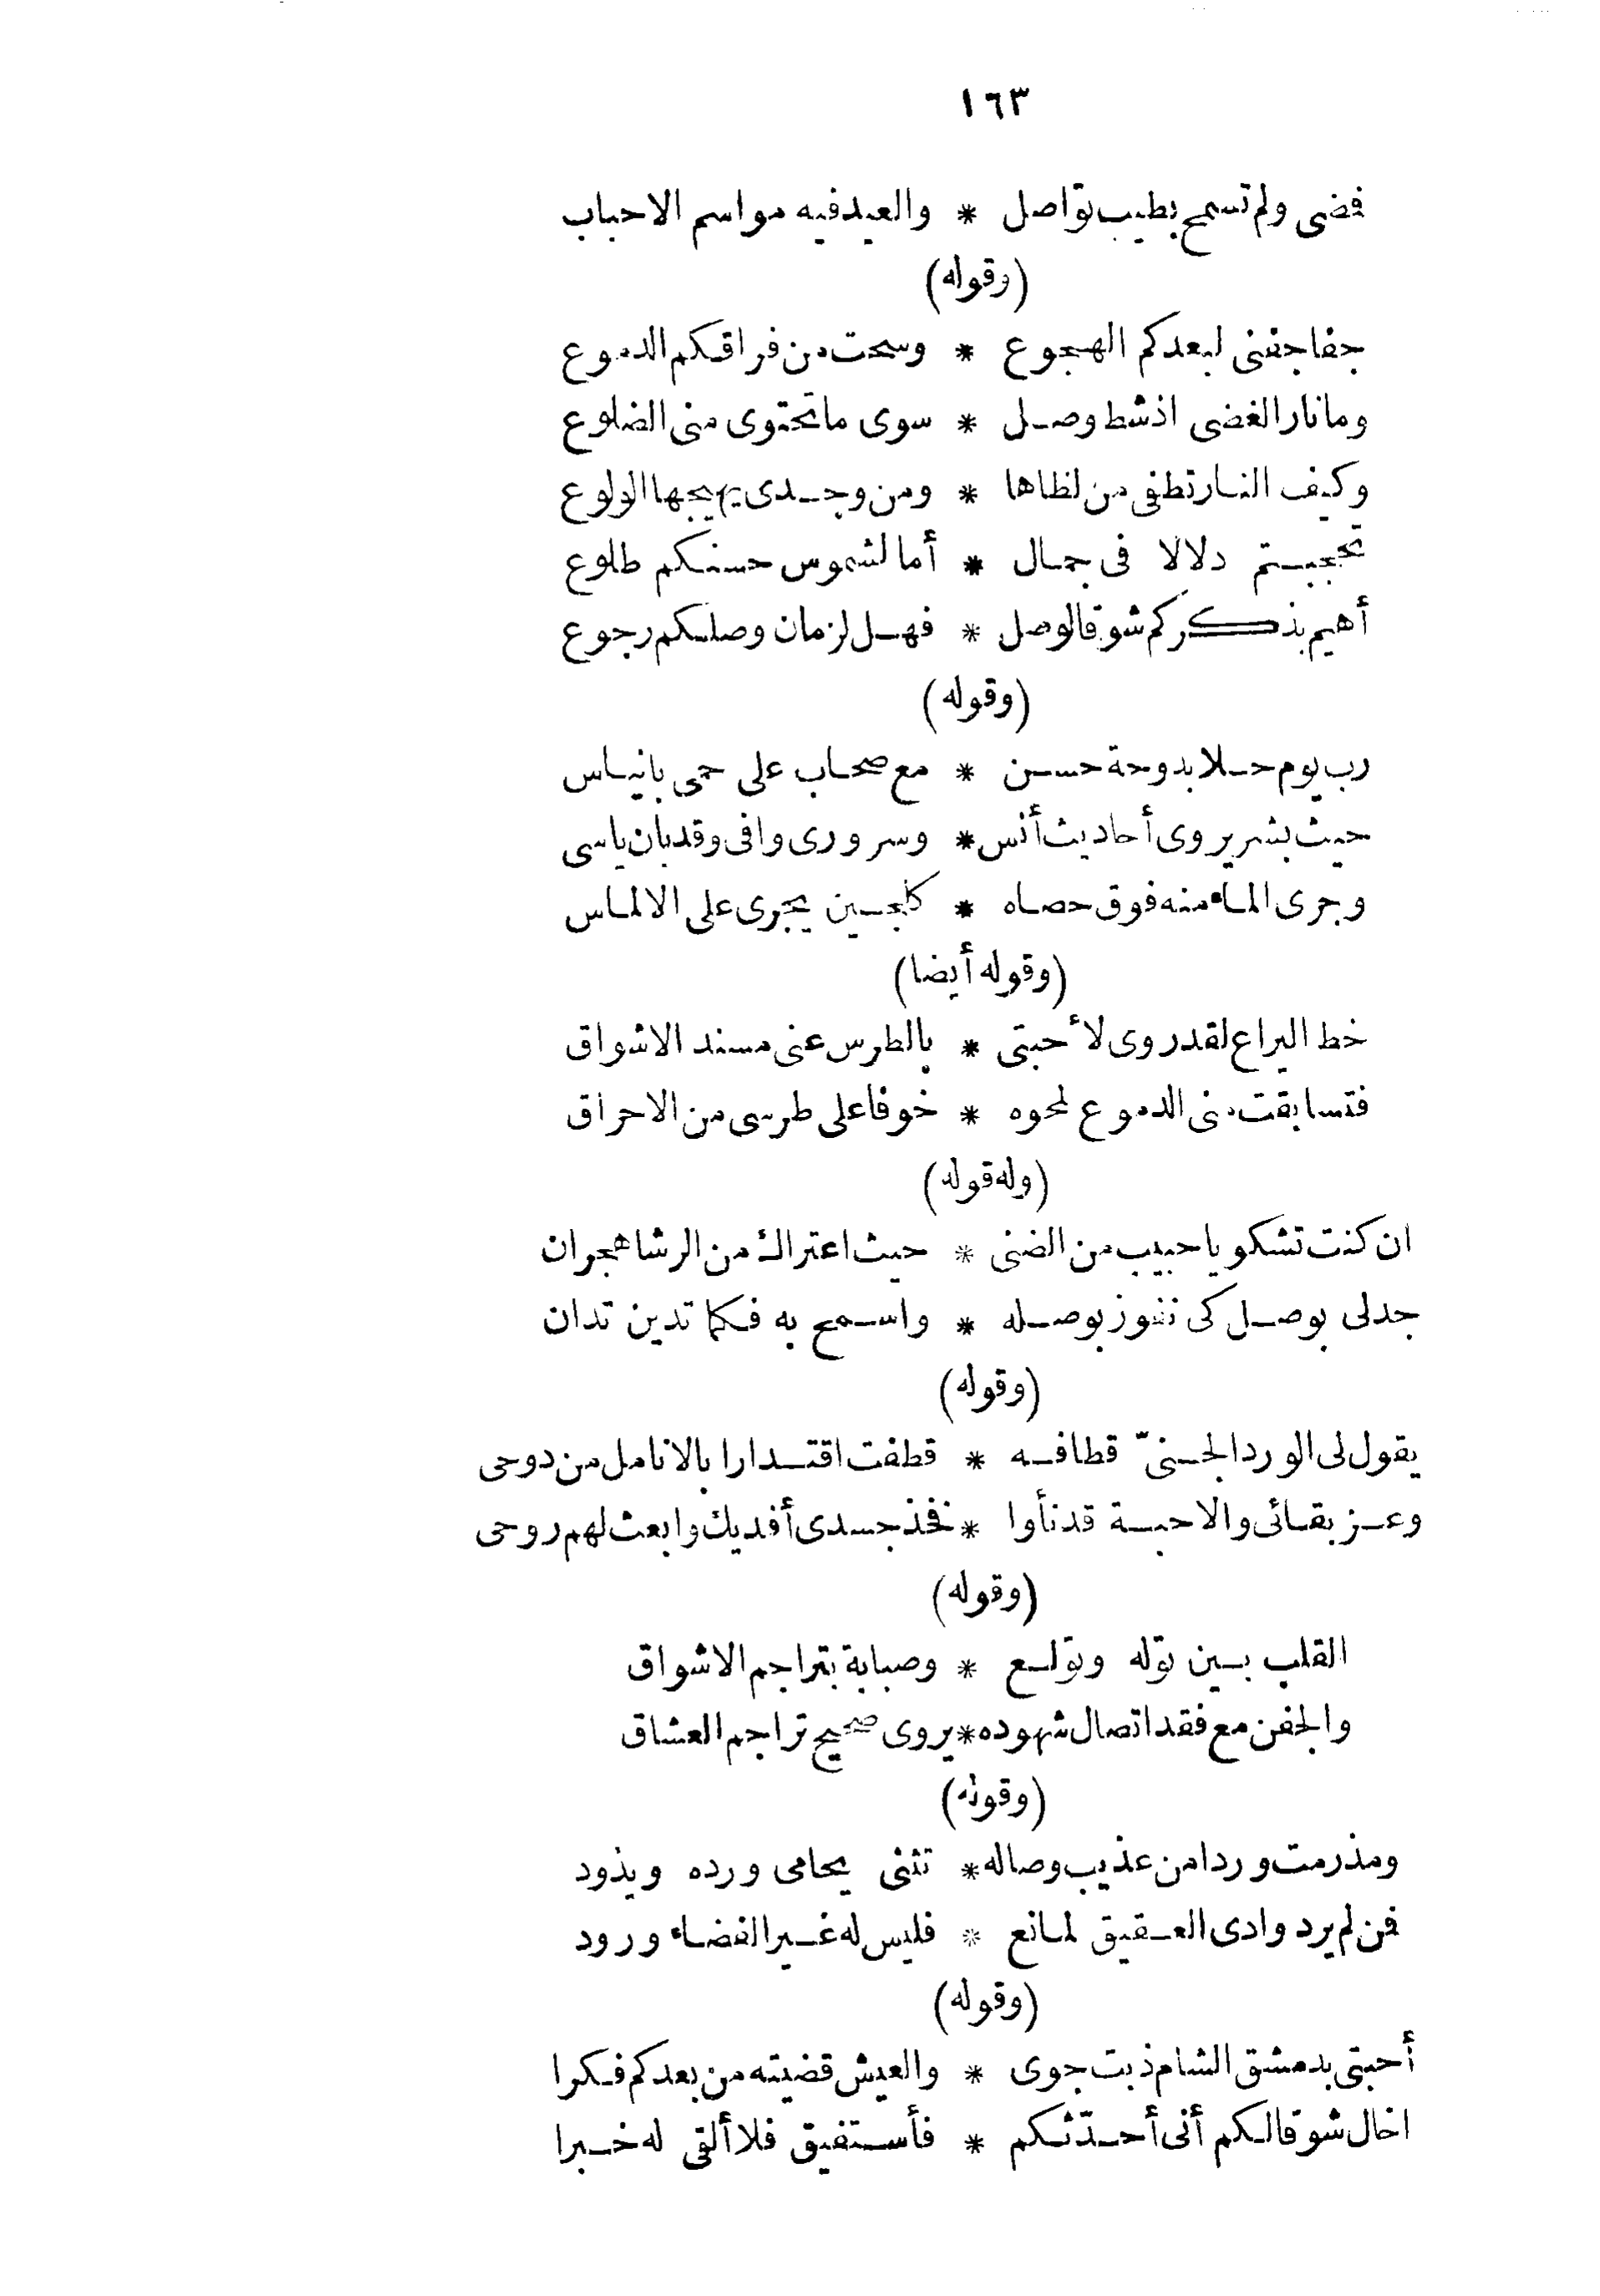 ١٦٣
فمضى ولم تسمح بطيب تواصل * والعيد فيه مواسم الاحباب
(وقوله)
جفا جفنى لبعدكم الهجوع * وسحت من فراقكم الدموع
وما نار الغضى اذ شط وصل * سوى ما تحتوى منى الضلوع
وكيف النار تطفى من لظاها * ومن وجدى يهيجها الولوع
تحجبتم دلالا فى جمال * أما لشموس حسنكم طلوع
أهيم بذكركم شوقا لوصل * فهل لزمان وصلكم رجوع
(وقوله)
رب يوم حلا بدوحة حسن * مع صحاب على حمى بانياس
حيث بشر يروى أحاديث أنس * وسرورى وافى وقد بان ياسى
وجرى الماء منه فوق حصاه * كلجين يجرى على الالماس
(وقوله أيضا)
خط اليراع لقد روى لأحبتى * بالطرس عنى مسند الاشواق
فتسابقت منى الدموع لمحوه * خوفا على طرسى من الاحراق
(وله قوله)
ان كنت تشكو يا حبيب من الضنى * حيث اعتراك من الرشا هجران
جد لى بوصل كى تفوز بوصله * واسمح به فكما تدين تدان
(وقوله)
يقول لى الورد الجنىّ قطافه * قطفت اقتدارا بالانامل من دوحى
وعز بقائى والاحبة قد نأوا * فخذ جسدى أفديك وابعث لهم روحى
(وقوله)
القلب بين توله وتولع * وصبابة بتراجم الاشواق
والجفن مع فقد اتصال شهوده * يروى صحيح تراجم العشاق
(وقوله)
ومذ رمت وردا من عذيب وصاله * تثنى يحامى ورده ويذود
فمن لم يرد وادى العقيق لمانع * فليس له غير الفضاء ورود
(وقوله)
أحبتى بدمشق الشام ذبت جوى * والعيش قضيته من بعدكم فكرا
اخال شوقا لكم أنى أحدّثكم * فأستفيق فلا ألقى له خبرا